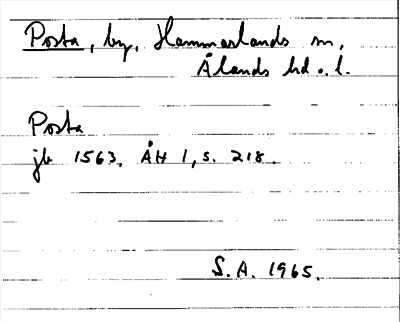 Posta, by, Hammarlands sn,
Ålands hd o. l.
Posta
jb 1563. ÅH 1, s. 218.
S. A. 1965.